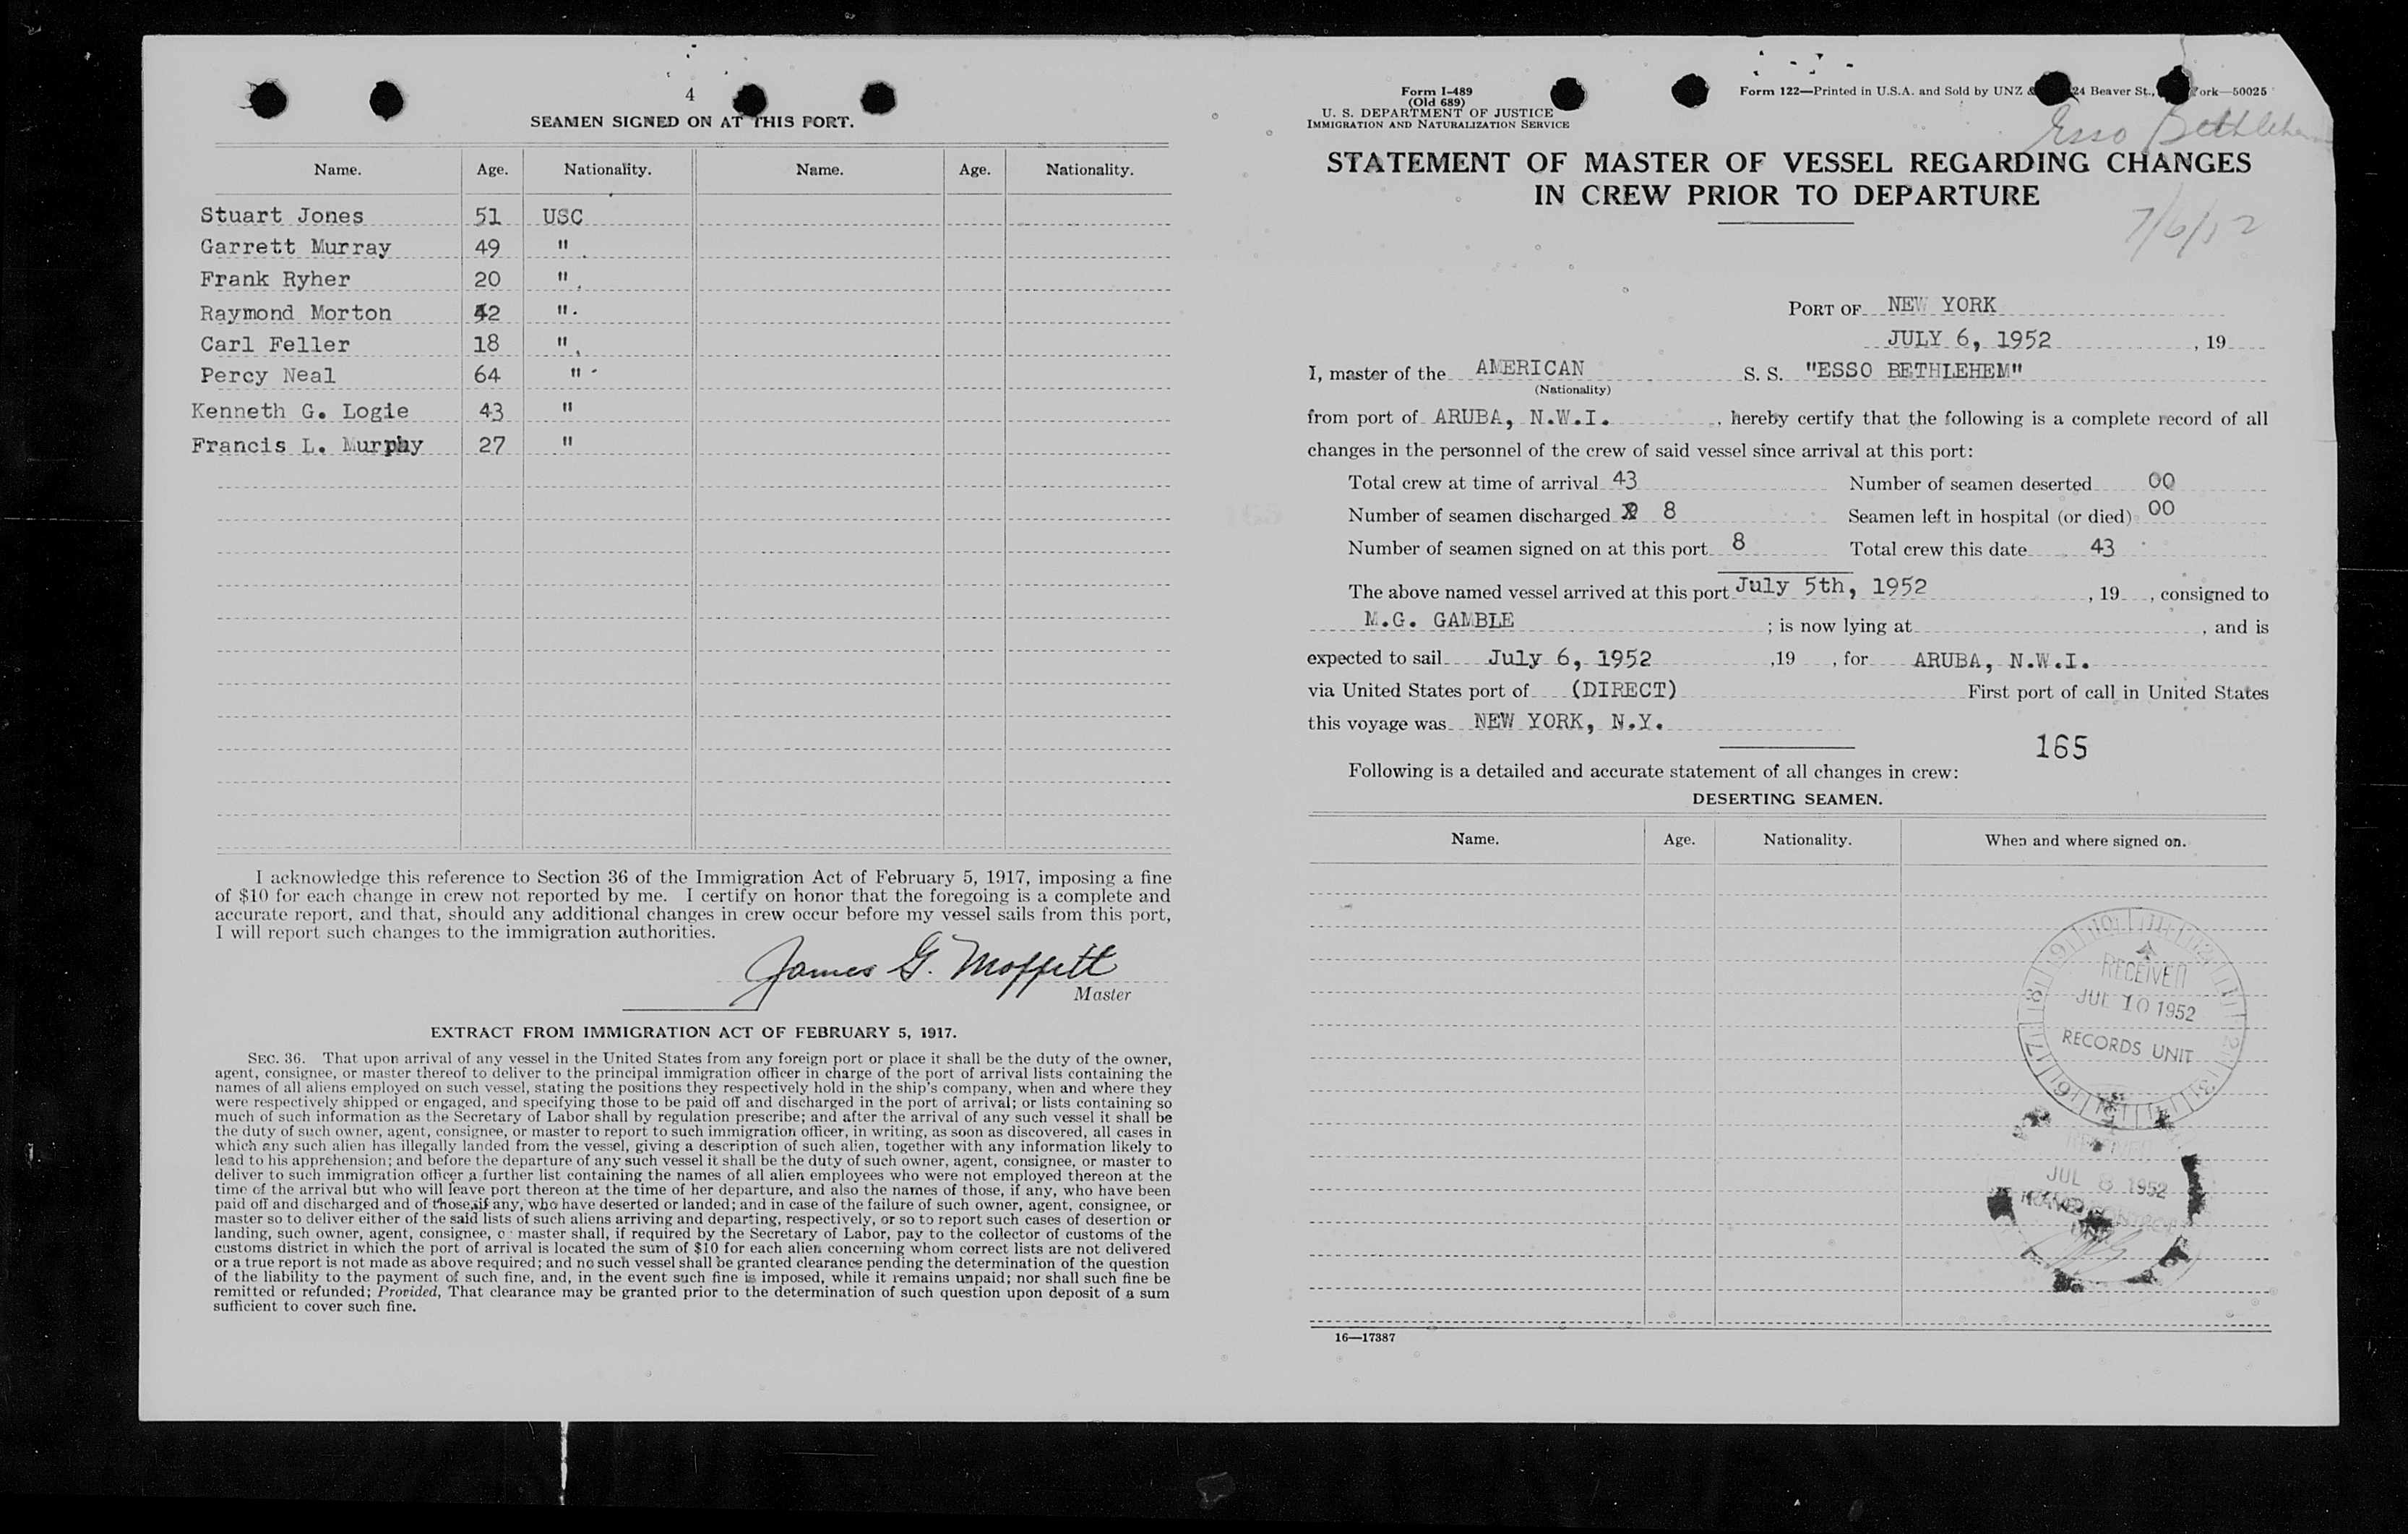 4
SEAMEN SIGNED ON AT THIS PORT.
Name. Age. Nationality. Name. Age. Nationality.
Stuart Jones 51 USC
Garrett Murray 49 "
Frank Ryher 20 "
Raymond Morton 42 "
Carl Feller 18 "
Percy Neal 64 "
Kenneth G. Logie 43 "
Francis L. Murphy 27 "
I acknowledge this reference to Section 36 of the Immigration Act of February 5, 1917, imposing a fine
of $10 for each change in crew not reported by me. I certify on honor that the foregoing is a complete and
accurate report, and that, should any additional changes in crew occur before my vessel sails from this port,
I will report such changes to the immigration authorities.
James G. Moffett
Master
EXTRACT FROM IMMIGRATION ACT OF FEBRUARY 5, 1917.
SEC. 36. That upon arrival of any vessel in the United States from any foreign port or place it shall be the duty of the owner,
agent, consignee, or master thereof to deliver to the principal immigration officer in charge of the port of arrival lists containing the
names of all aliens employed on such vessel, stating the positions they respectively hold in the ship's company, when and where they
were respectively shipped or engaged, and specifying those to be paid off and discharged in the port of arrival; or lists containing so
much of such information as the Secretary of Labor shall by regulation prescribe; and after the arrival of any such vessel it shall be
the duty of such owner, agent, consignee, or master to report to such immigration officer, in writing, as soon as discovered, all cases in
which any such alien has illegally landed from the vessel, giving a description of such alien, together with any information likely to
lead to his apprehension; and before the departure of any such vessel it shall be the duty of such owner, agent, consignee, or master to
deliver to such immigration officer a further list containing the names of all alien employees who were not employed thereon at the
time of the arrival but who will leave port thereon at the time of her departure, and also the names of those, if any, who have been
paid off and discharged and of those, if any, who have deserted or landed; and in case of the failure of such owner, agent, consignee, or
master so to deliver either of the said lists of such aliens arriving and departing, respectively, or so to report such cases of desertion or
landing, such owner, agent, consignee, or master shall, if required by the Secretary of Labor, pay to the collector of customs of the
customs district in which the port of arrival is located the sum of $10 for each alien concerning whom correct lists are not delivered
or a true report is not made as above required; and no such vessel shall be granted clearance pending the determination of the question
of the liability to the payment of such fine, and, in the event such fine is imposed, while it remains unpaid; nor shall such fine be
remitted or refunded; Provided, That clearance may be granted prior to the determination of such question upon deposit of a sum
sufficient to cover such fine.
Form I-489
(Old 689)
U. S. DEPARTMENT OF JUSTICE
IMMIGRATION AND NATURALIZATION SERVICE
Form 122—Printed in U.S.A. and Sold by UNZ & 24 Beaver St., York—50025
Esso Bethlehem
STATEMENT OF MASTER OF VESSEL REGARDING CHANGES
IN CREW PRIOR TO DEPARTURE
7/6/52
PORT OF NEW YORK
JULY 6, 1952, 19
I, master of the AMERICAN S. S. "ESSO BETHLEHEM"
(Nationality)
from port of ARUBA, N.W.I., hereby certify that the following is a complete record of all
changes in the personnel of the crew of said vessel since arrival at this port:
Total crew at time of arrival 43 Number of seamen deserted 00
Number of seamen discharged 8 Seamen left in hospital (or died) 00
Number of seamen signed on at this port 8 Total crew this date 43
The above named vessel arrived at this port July 5th, 1952, 19, consigned to
M.G. GAMBLE; is now lying at, and is
expected to sail July 6, 1952, 19, for ARUBA, N.W.I.
via United States port of (DIRECT) First port of call in United States
this voyage was NEW YORK, N.Y.
165
Following is a detailed and accurate statement of all changes in crew:
DESERTING SEAMEN.
Name. Age. Nationality. When and where signed on.
RECEIVED
JUL 10 1952
RECORDS UNIT
JUL 8 1952
16—17387